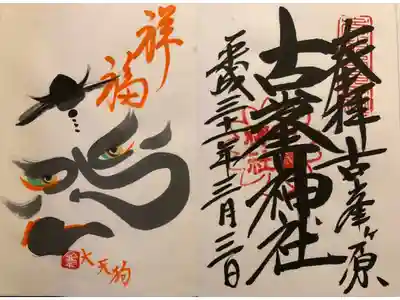 奉拝 古峯ヶ原
古峯神社
平成三十一年三月三日
祥福
大天狗